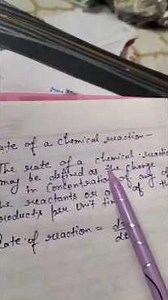 ate of a chemical reaction -
The rate of a chemical reacti
may be defined as the change
in concentration of any of
the reactants or of
products per unit ti
ate of reaction = d